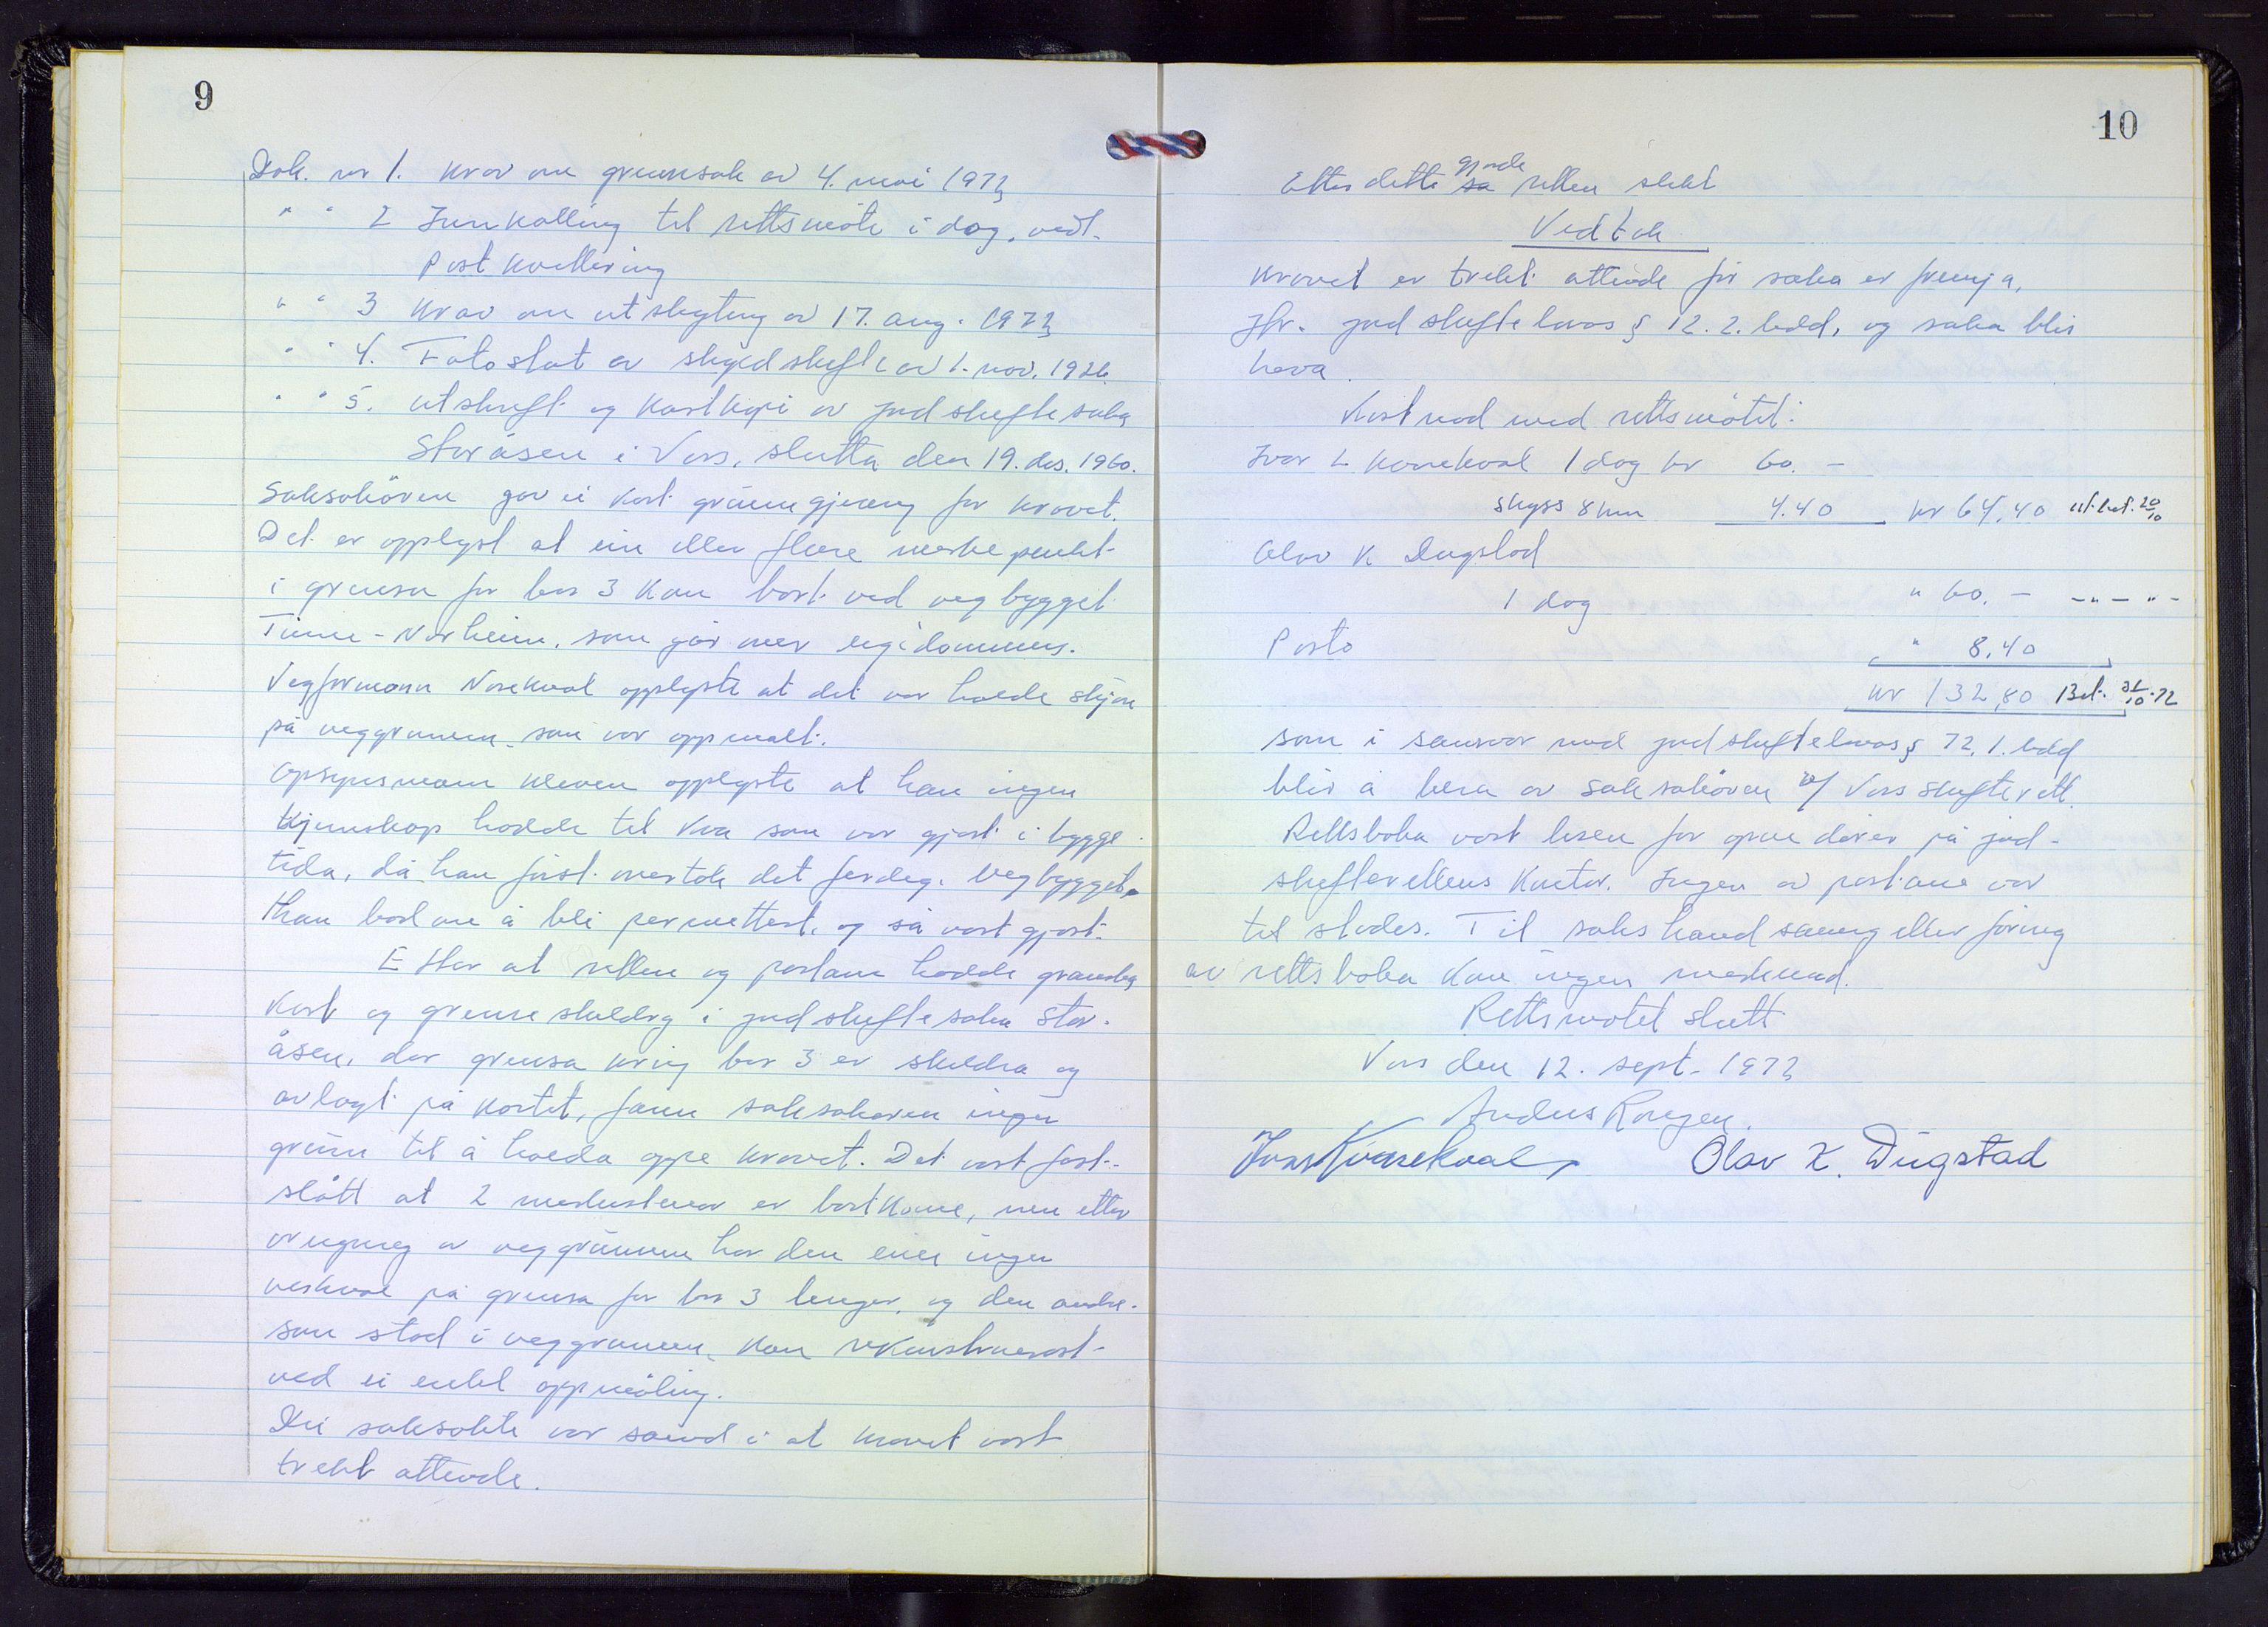 9
Dok. nr 1. Krav om grensesak av 4. mai 1972
" " 2 Innkalling til rettsmöte i dag, vedl.
Postkvittering
" " 3 Krav om utskyting av 17. aug. 1972
" " 4. Fotostat av skogskifte av 1. nov. 1926.
" " 5. utskrift og kartkopi av jordskiftesaka
Storåsen i Voss, slutta den 19. des. 1960.
Saksökören gav ei kort grunngjeving for kravet.
Det er opplyst at ein eller fleire merkepunkt
i grensa for bnr 3 kom bort ved vegbygget
- Norheim, som går over eigedommen.
Vegformann opplyste at det var halde skjøn
på veggrunnen, som var oppmålt.
Opsynsmann Kleven opplyste at han ingen
kjennskap hadde til kva som var gjort i bygge
tida, då han först overtok det ferdige vegbygget.
Han bad om å bli permittert, og så vart gjort.
Etter at retten og partane hadde granska
kart og grenseskildring i jordskiftesaka Stor-
åsen, der grensa kring bnr 3 er skildra og
avlagt på kartet, fann saksökaren ingen
grunn til å halda oppe kravet. Det vart fast-
slått at 2 merkesteinar er bortkome, men etter
av veggrunnen har den eine ingen
verknad på grensa for bnr 3 lenger, og den andre
som stod i veggrunnen, kan rekonstruerast
ved ei enkel oppmåling.
Dei saksökte var samd i at kravet vart
trekt attende.
10
Etter dette sa gjorde retten slikt
Vedtak
Kravet er trekt attende för saka er fremja,
Jfr. jordskiftelovas § 12. 2. ledd, og saka blir
heva.
Kostnad med rettsmötet:
Ivar L Kvarekval 1 dag kr 60. -
skyss 8 km 4.40 kr 64,40 utbet. 20/10
Olav K Dugstad
1 dag " 60. - - " - " -
Porto " 8,40
kr 132,80 Bet. 31/10-72
som i samsvar med jordskiftelovas § 72, 1. ledd
blir å bera av saksökören v/ Voss skifterett.
Rettsboka vart lesen for opne dörer på jord-
skifterettens kontor. Ingen av partane var
til stades. Til sakshandsaming eller föring
av rettsboka kom ingen merknad.
Rettsmötet slutt
Voss den 12. sept. 1972
Anders Rongen.
Ivar Kvarekval Olav K. Dugstad